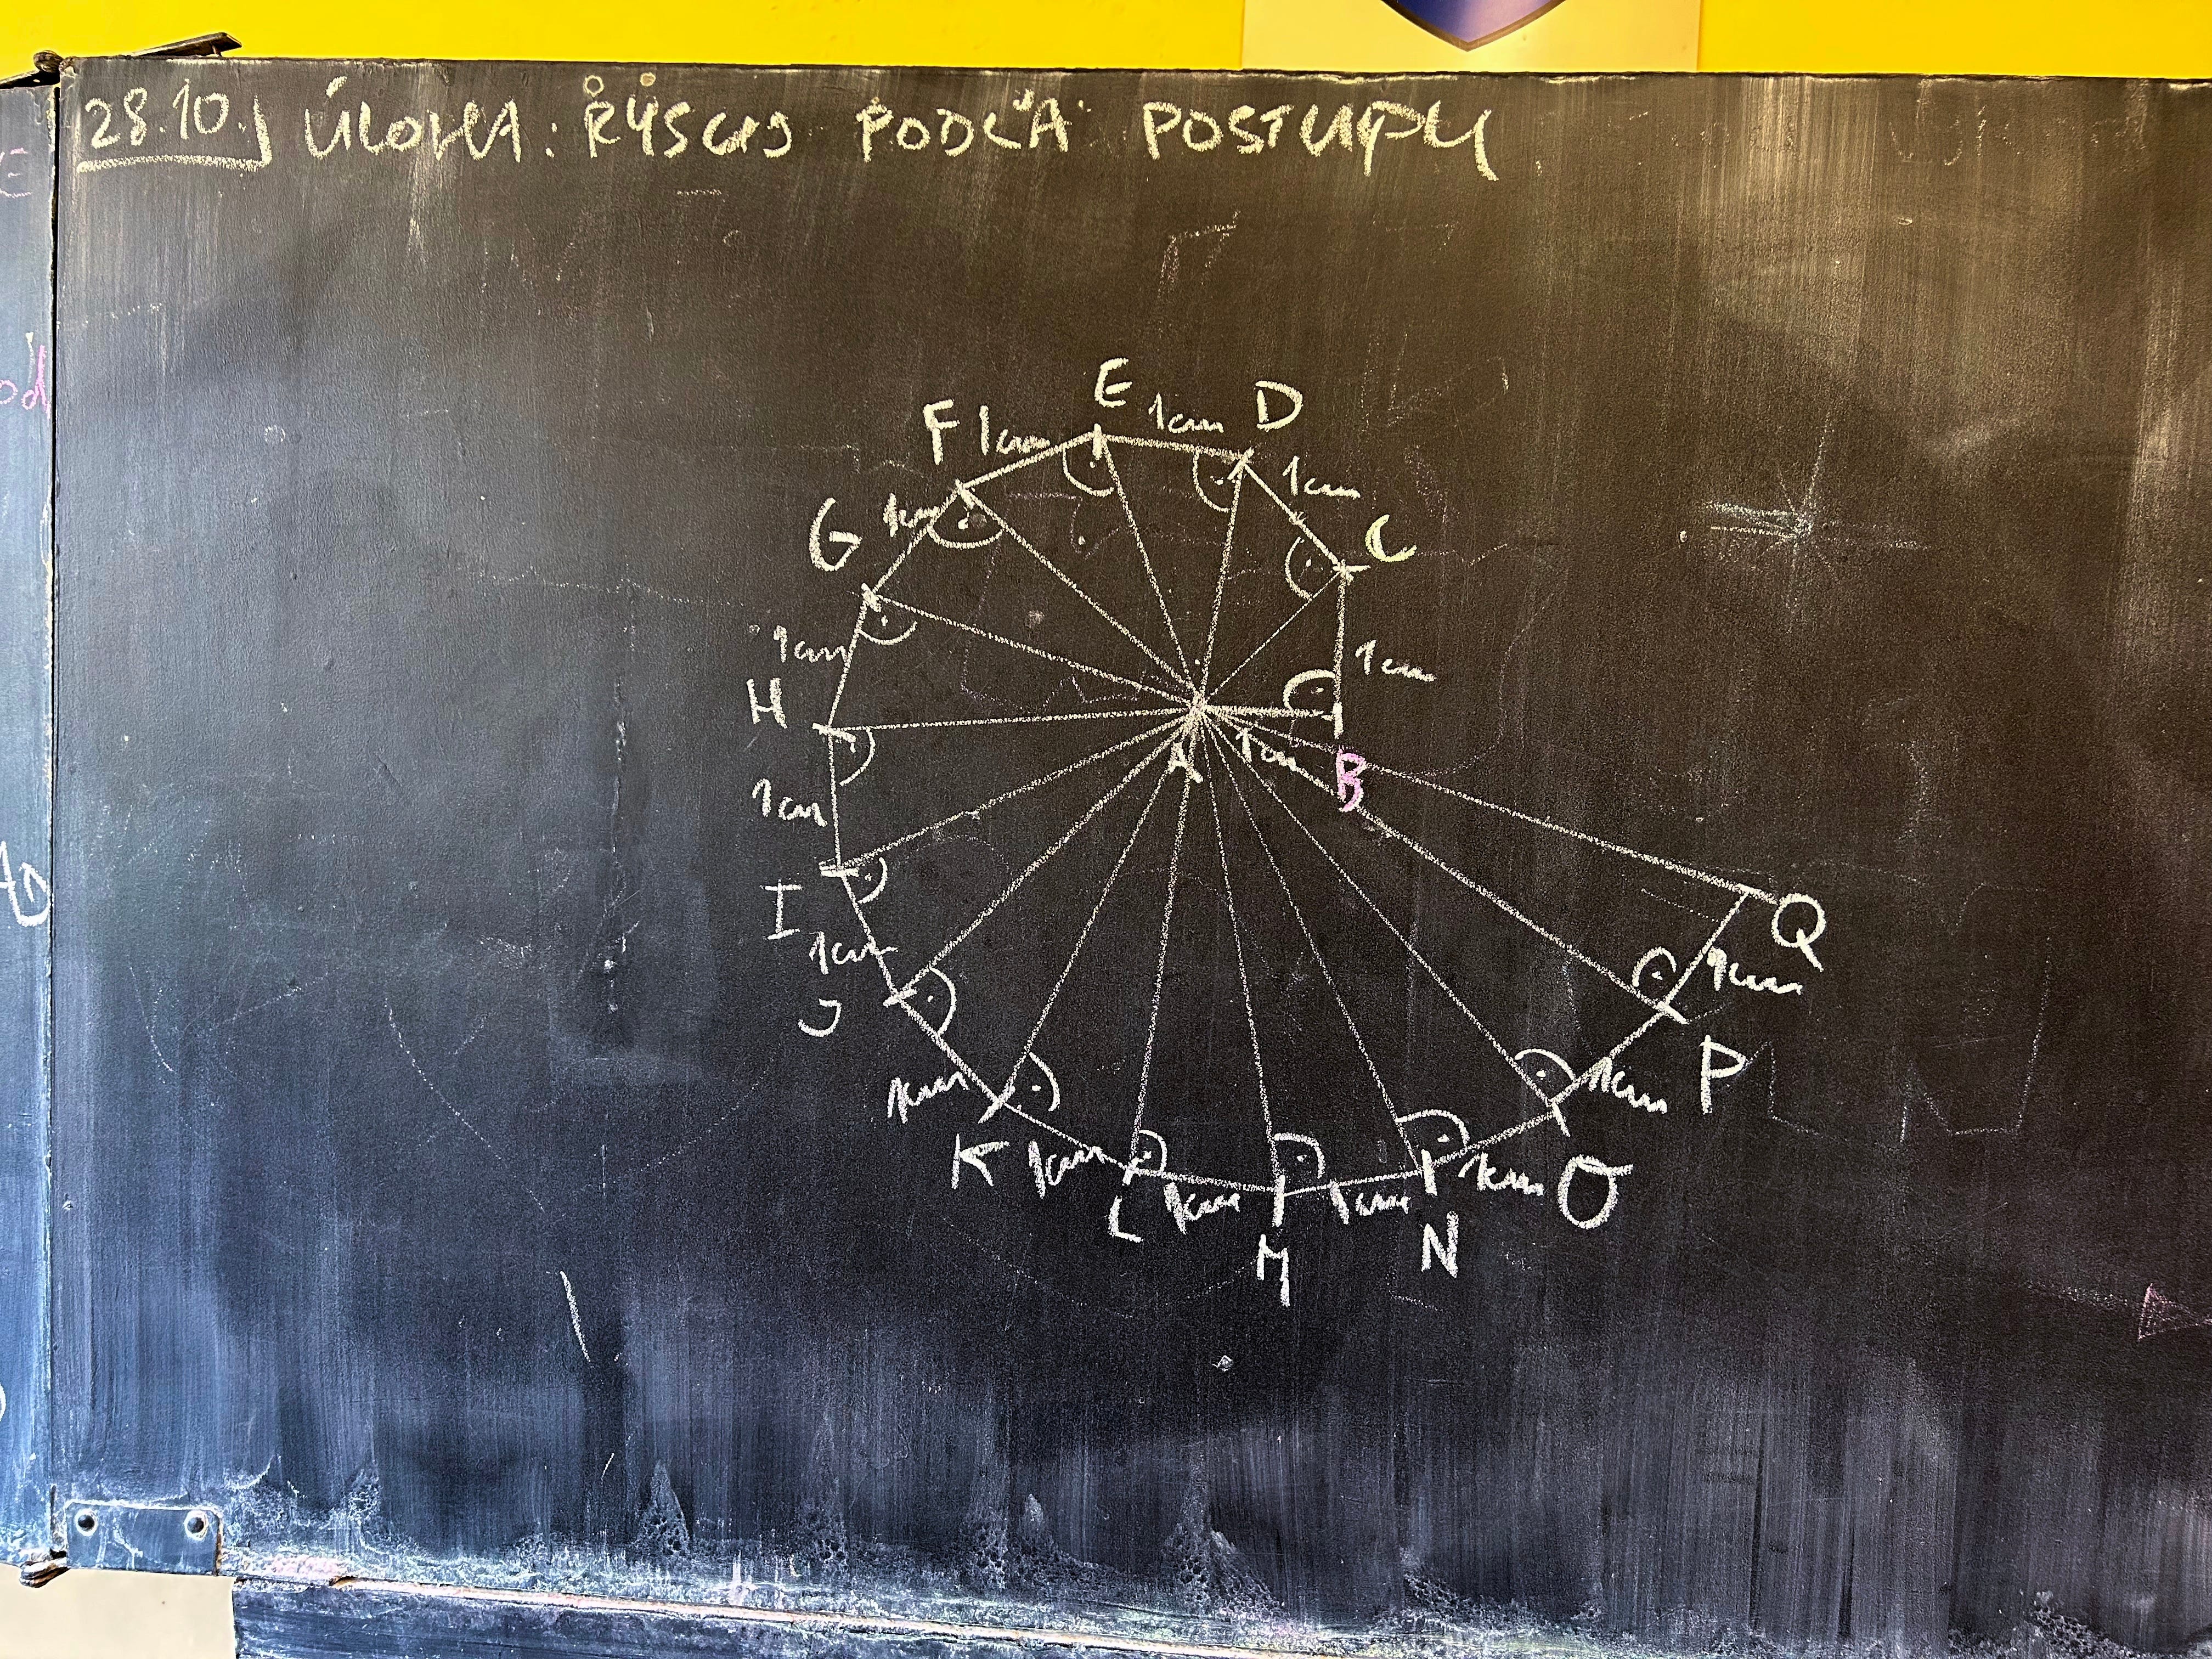 28.10. ÚLOHA: RYSUJ PODĽA POSTUPU
E 1cm D
F 1cm
1cm
G 1cm
C
1cm
1cm
H
A 1cm B
1cm
I
Q
1cm
1cm
J
1cm
1cm P
K 1cm
L 1cm 1cm 1cm O
M N